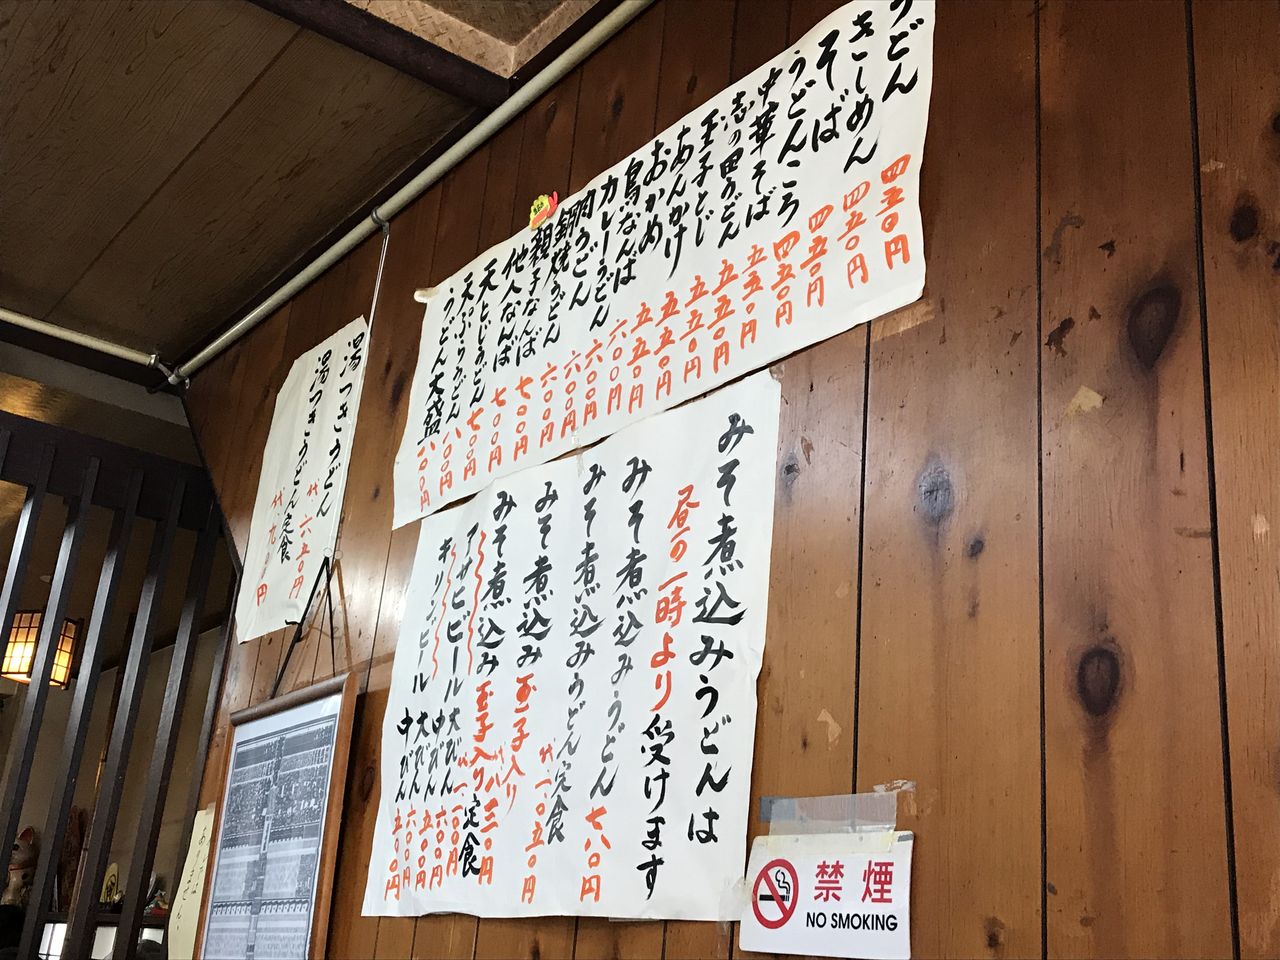 うどん 四五〇円
きしめん 四五〇円
そば 四五〇円
うどんころ 四五〇円
中華そば 五五〇円
志の田うどん 五五〇円
玉子とじ 五五〇円
あんかけ 五五〇円
おかめ 五五〇円
鳥なんば 六〇〇円
カレーうどん 六〇〇円
肉うどん 六〇〇円
鍋焼うどん
親子なんば 七〇〇円
他人なんば 七〇〇円
天とじうどん 七〇〇円
天ぷらうどん 八〇〇円
うどん大盛 八〇〇円
みそ煮込みうどんは
昼の一時より受けます
みそ煮込みうどん 七八〇円
みそ煮込みうどん定食 代、一、〇五〇円
みそ煮込み玉子入り 代 八三〇円
みそ煮込み玉子入り定食 代、一、一〇〇円
アサヒビール 大びん 六〇〇円
中びん 五〇〇円
キリンビール 大びん 六〇〇円
中びん 五〇〇円
湯つきうどん 代、六五〇円
湯つきうどん定食 代 九〇〇円
禁煙
NO SMOKING